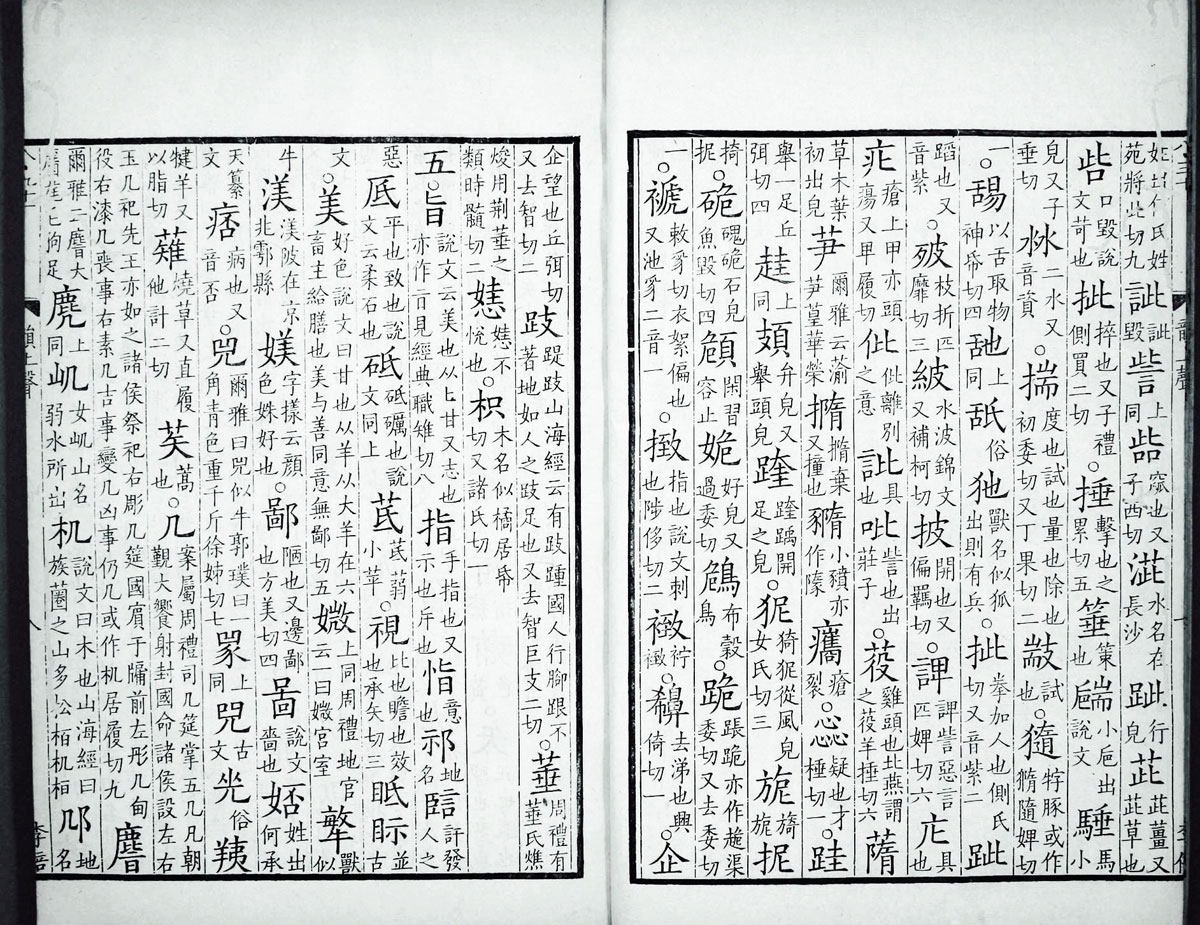 姓出何氏姓苑將此切九訿訿毀訾上同啙窳也又子西切澁水名在長沙跐行皃茈茈薑又茈草也
呰口毀說文苛也㧗捽也又子禮側買二切○捶擊也之累切五箠策也㼷小巵出說文騹馬小
皃又子垂切沝二水又音資○揣度也試也量也除也初委切又丁果切二㪜試也○㹀豚或作隨婢切
一○舓以舌取物神帋切四䑛上同舐俗獸名似狐出則有兵○㧗拳加人也側氏切又音紫二跐
蹈也又音紫○枝折匹靡切三紴水波錦文又補柯切披開也又偏羈切○諀諀訾惡言匹婢切六庀具也
疕瘡上甲亦頭瘍又卑履切仳仳離別之意訿具也吡訾也出莊子○䓈雞頭也北燕謂之䓈羊捶切六蓶
草木葉初出皃芛爾雅云蕍芛葟華榮撱撱棄又撞也小豶亦作瘡裂○惢疑也才棰切一○跬
舉一足丘弭切四上同頍弁皃又舉頭皃開足之皃○狔猗狔從風皃女氏切三旎旖旎抳
掎抳○硊磈硊石皃魚毀切四頠閑習容止姽好皃又過委切布穀鳥○跪跪亦作渠委切又去委切
一○褫敕豸切衣絮偏也又池豸二音一○㨖指也說文刺也陟侈切二緻緻袸○去涕也興倚切一○企
企望也丘弭切又去智切二跂踶跂山海經云有跂踵國人行腳跟不著地如人之跂足也又去智巨支二切○菙周禮有菙氏燋
焌用荊菙之類時髓切二不悅也○枳木名似橘居帋切又諸氏切一
五旨說文云美也从匕甘又志也亦作㫖見經典職雉切八指手指也又示也斥也恉意也地名訐發人之
惡厎平也致也說文云柔石也砥砥礪也說文同上茋茋蒻小苹○視比也瞻也效也承矢切三眡眎並古
文○美好色說文曰甘也从羊从大羊在六畜主給膳也美与善同意無鄙切五媺上同周禮地官云一曰媺宮室獸似
牛渼渼陂在京兆鄠縣媄字樣云顏色姝好也○鄙陋也又邊鄙也方美切四啚說文嗇也姓出何承
天纂文痞病也又音否○兕爾雅曰兕似牛郭璞曰一角青色重千斤徐姊切七上同古文俗羠
犍羊又以脂切薙燒草又直履他計二切蒿也○几案屬周禮司几筵掌五几凡朝覲大饗射封國命諸侯設左右
玉几祀先王亦如之諸侯祭祀右彫几筵國賓于牖前左彤几甸役右漆几喪事右素几古事變几凶事仍几或作机居履切九麔
爾雅云麔大狗足麂上同屼女屼山名弱水所出机說文曰木也山海經曰族蘲之山多松栢机桓邔地名